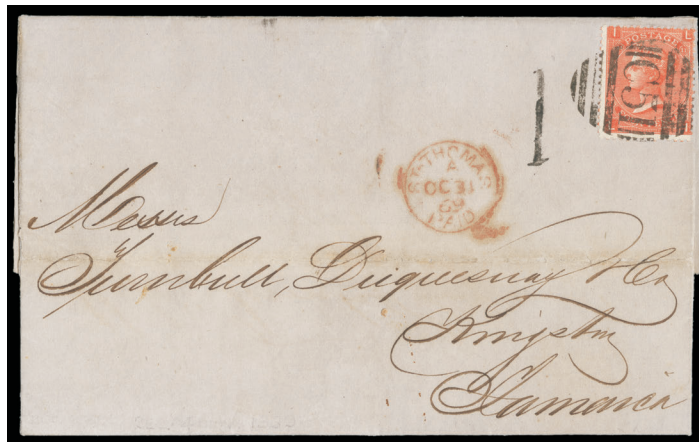 I L
POSTAGE
C51
1
ST. THOMAS
A
OC 31
69
PAID
Messrs
Turnbull, Duquesnay & Co
Kingston
Jamaica